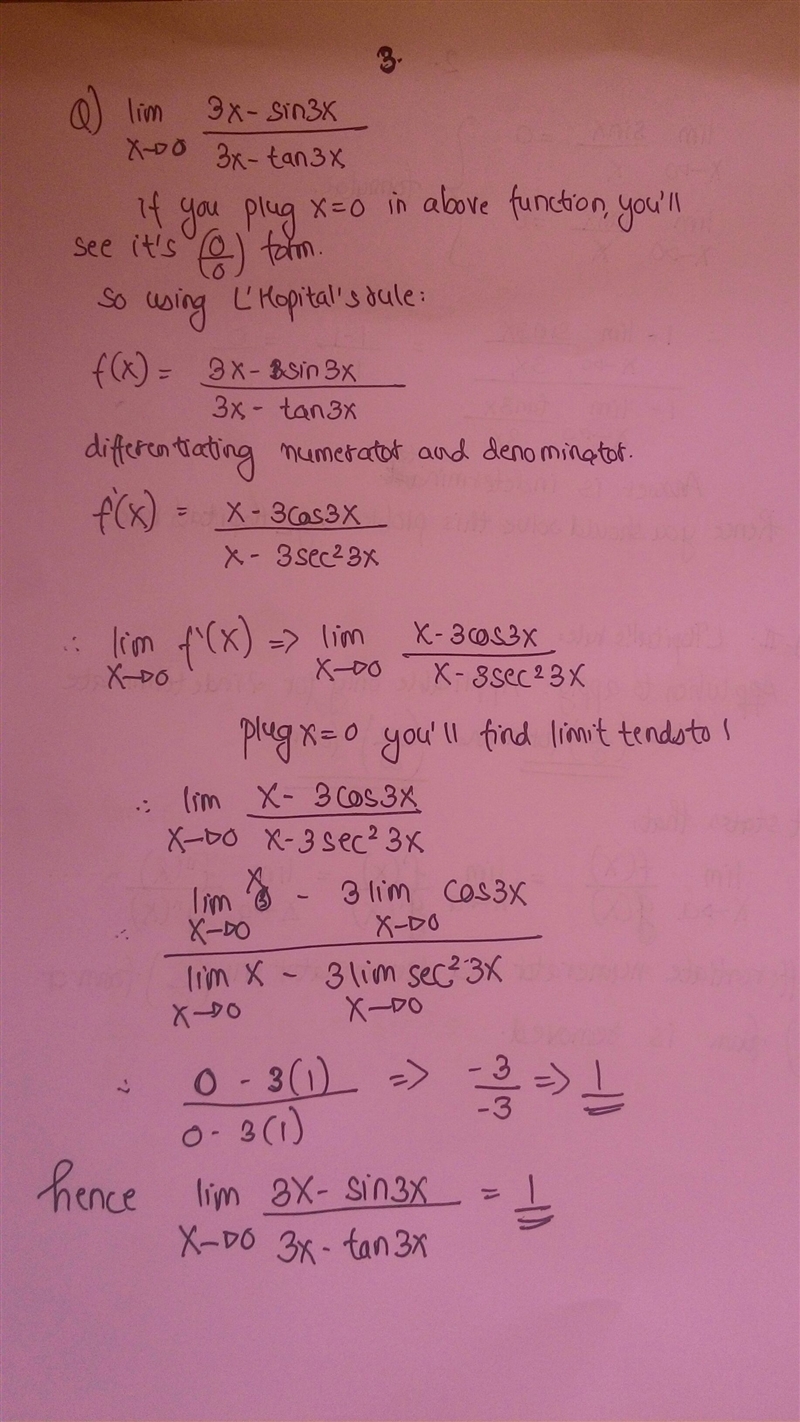 3.
Q) lim 3x - sin3x
x→0 3x - tan3x
If you plug x=0 in above function, you'll
see it's (0/0) form.
So using L'Hopital's rule:
f(x) = 3x - sin3x
3x - tan3x
differentiating numerator and denominator.
f'(x) = x - 3cos3x
x - 3sec²3x
∴ lim f'(x) => lim x - 3cos3x
x→0 x→0 x - 3sec²3x
plug x=0 you'll find limit tends to 1
∴ lim x - 3cos3x
x→0 x - 3sec²3x
∴ lim x - 3 lim cos3x
x→0 x→0
lim x - 3 lim sec²3x
x→0 x→0
∴ 0 - 3(1) => -3 => 1
0 - 3(1) -3
hence lim 3x - sin3x = 1
x→0 3x - tan3x